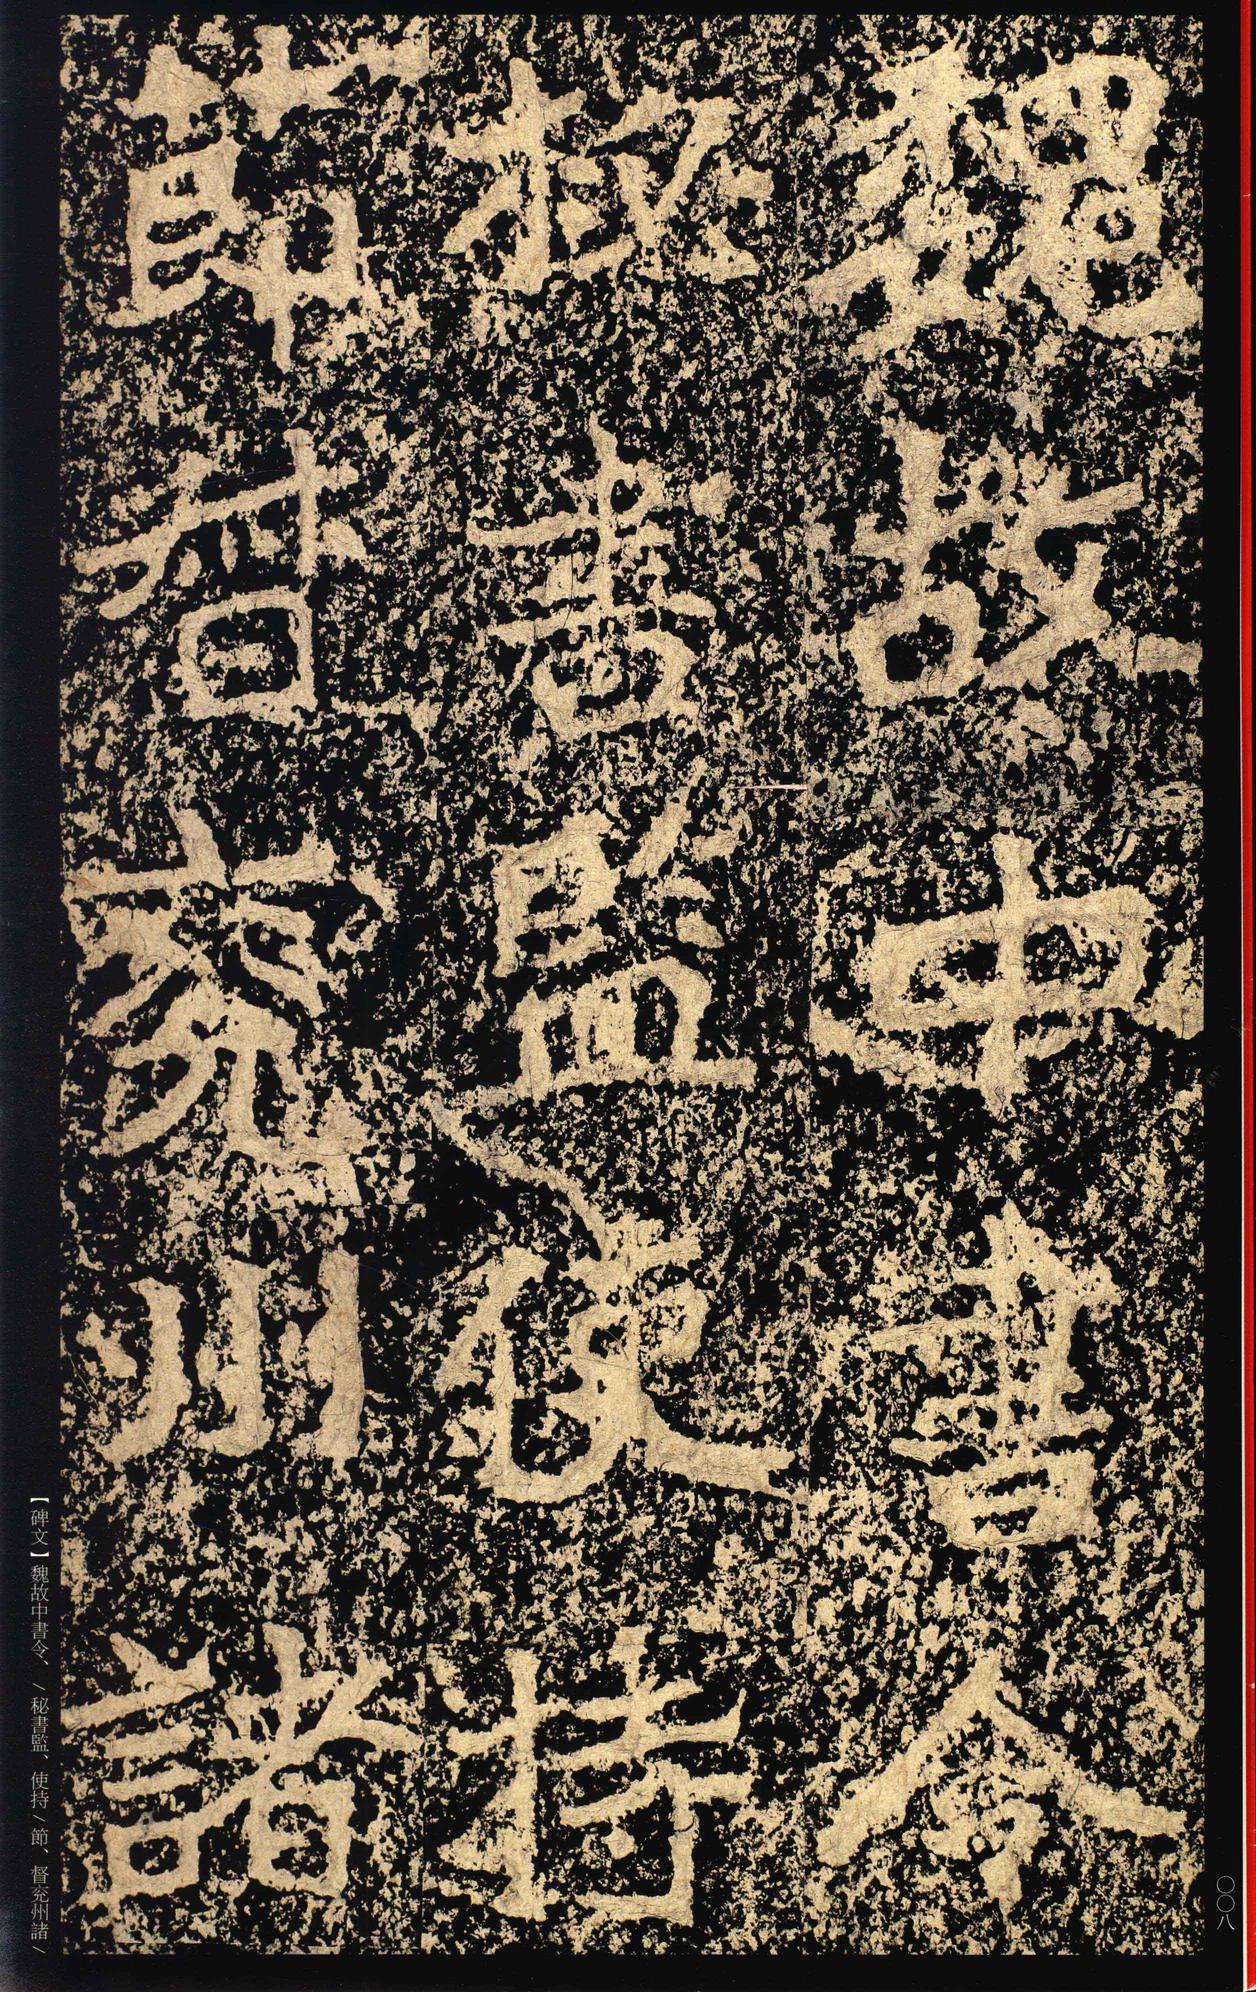 魏故中書令
秘書監使持
節督兖州諸
【碑文】魏故中書令、/秘書監、使持/節、督兖州諸/
〇〇八